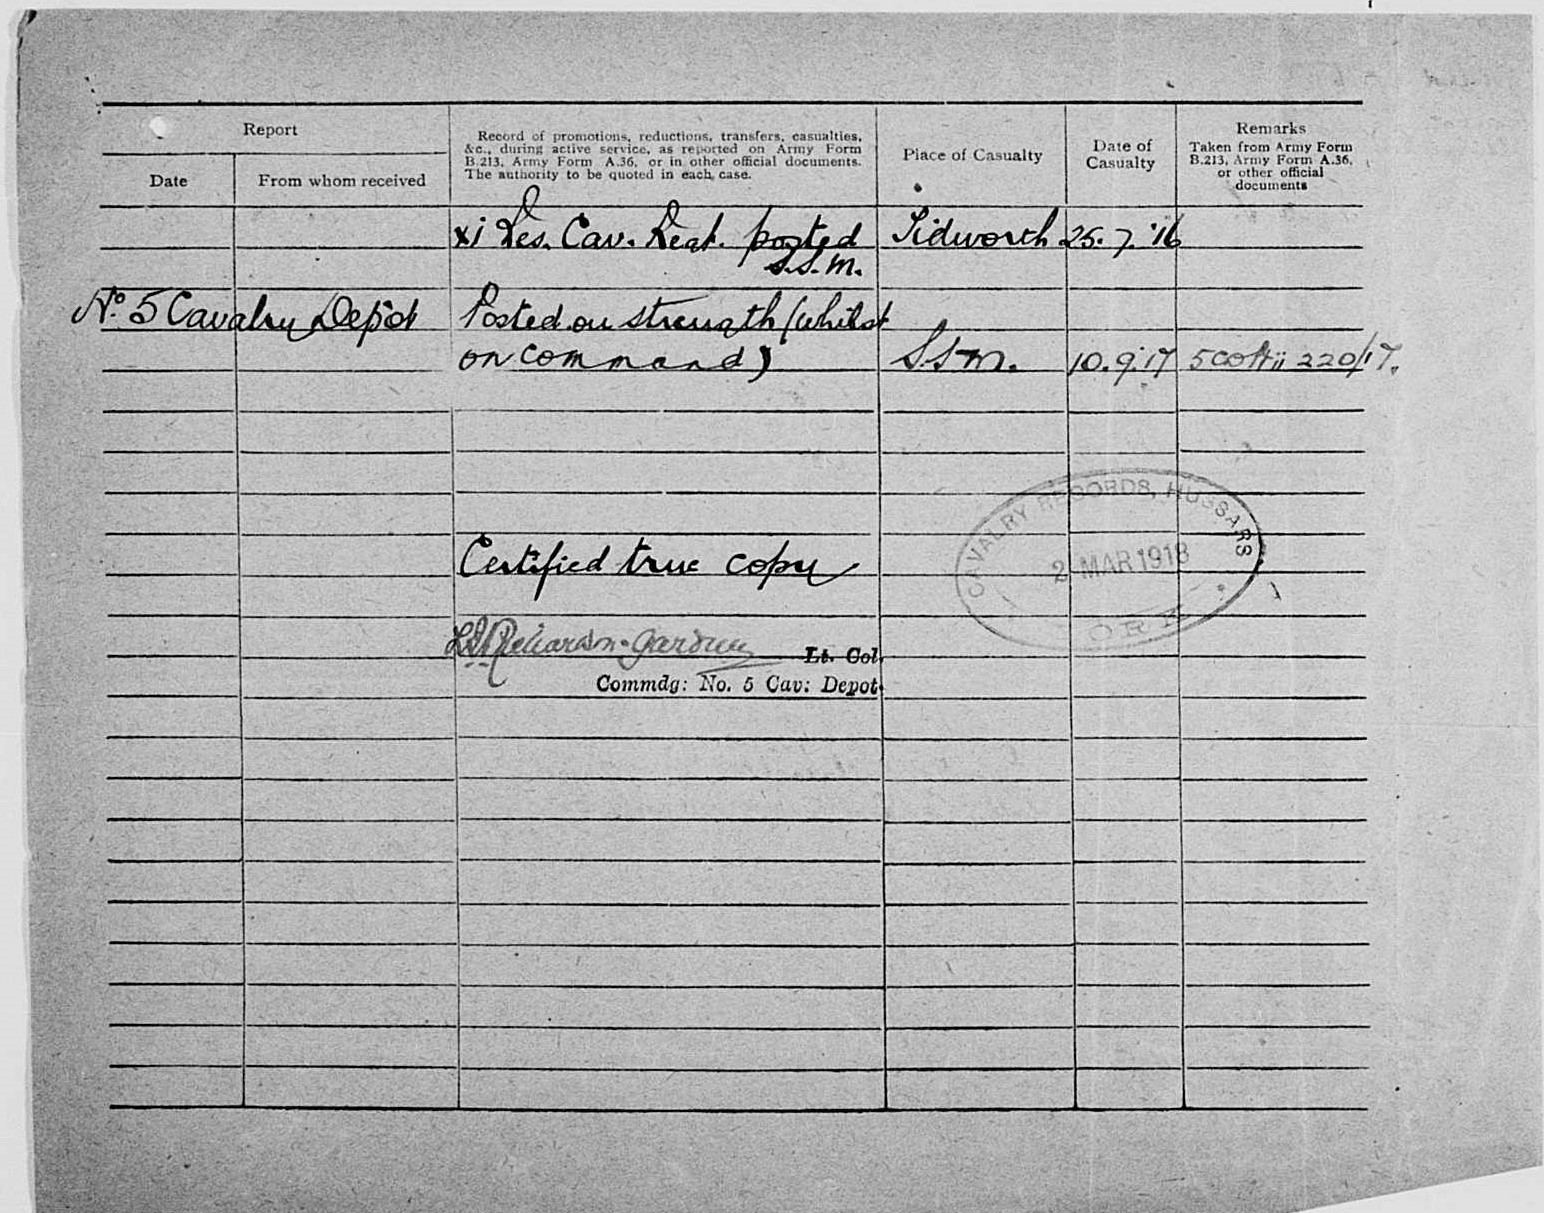 Report
Date
From whom received
Record of promotions, reductions, transfers, casualties,
&c., during active service, as reported on Army Form
B.213, Army Form A.36, or in other official documents.
The authority to be quoted in each case.
Place of Casualty
Date of
Casualty
Remarks
Taken from Army Form
B.213, Army Form A.36,
or other official
documents
xi Res. Cav. Regt. posted Tidworth 25.7.'16
S.S.M.
No. 5 Cavalry Depôt Posted on strength (whilst
on command) S.S.M. 10.9.17 220/17.
CAVALRY RECORDS, HUSSARS
2 MAR 1918
Certified true copy
Richardson-Gardner Lt. Col.
Commdg: No. 5 Cav: Depot.